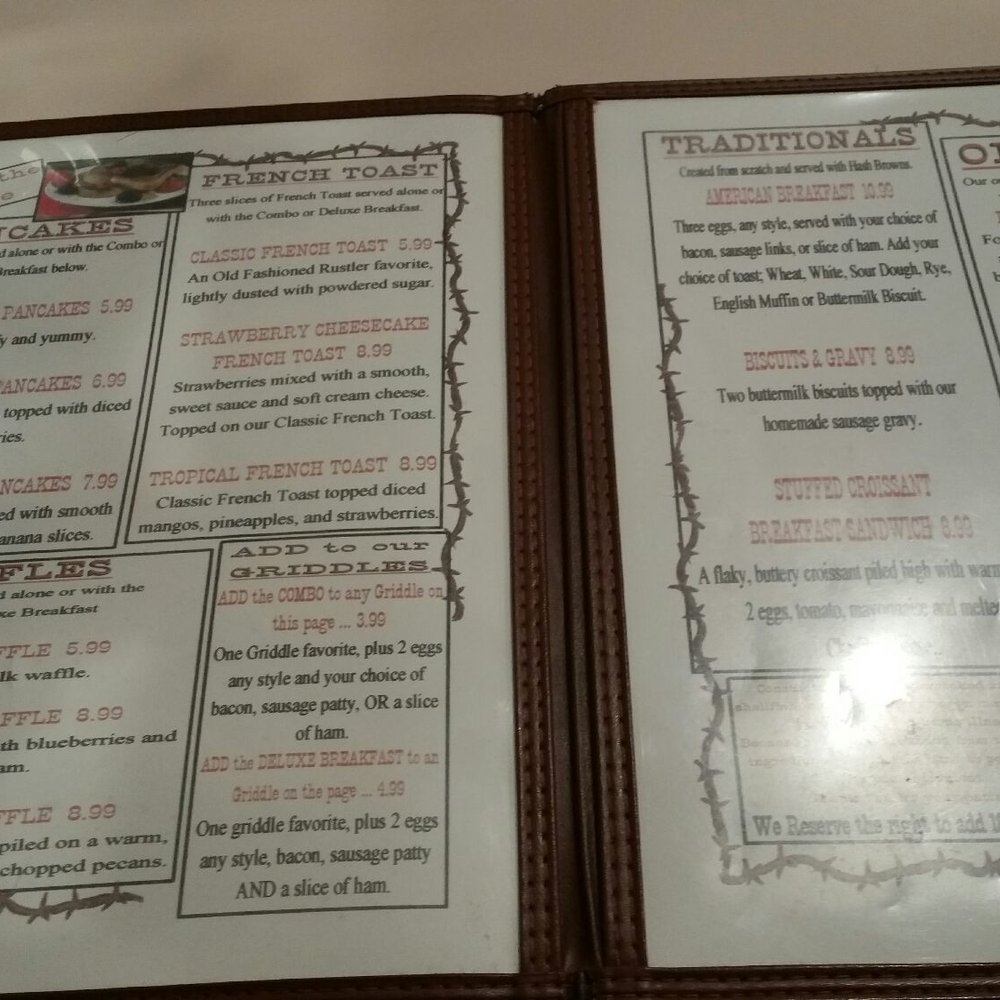 the
e
CAKES
alone or with the Combo or
Breakfast below.
PANCAKES 5.99
y and yummy.
PANCAKES 6.99
topped with diced
ries.
NCAKES 7.99
ed with smooth
anana slices.
FFLES
d alone or with the
xe Breakfast
FFLE 5.99
lk waffle.
FFLE 8.99
th blueberries and
am.
FFLE 8.99
piled on a warm,
chopped pecans.
FRENCH TOAST
Three slices of French Toast served alone or
with the Combo or Deluxe Breakfast.
CLASSIC FRENCH TOAST 5.99
An Old Fashioned Rustler favorite,
lightly dusted with powdered sugar.
STRAWBERRY CHEESECAKE
FRENCH TOAST 8.99
Strawberries mixed with a smooth,
sweet sauce and soft cream cheese.
Topped on our Classic French Toast.
TROPICAL FRENCH TOAST 8.99
Classic French Toast topped diced
mangos, pineapples, and strawberries.
ADD to our
GRIDDLES
ADD the COMBO to any Griddle on
this page ... 3.99
One Griddle favorite, plus 2 eggs
any style and your choice of
bacon, sausage patty, OR a slice
of ham.
ADD the DELUXE BREAKFAST to an
Griddle on the page ... 4.99
One griddle favorite, plus 2 eggs
any style, bacon, sausage patty
AND a slice of ham.
TRADITIONALS
Created from scratch and served with Hash Browns.
AMERICAN BREAKFAST 10.99
Three eggs, any style, served with your choice of
bacon, sausage links, or slice of ham. Add your
choice of toast; Wheat, White, Sour Dough, Rye,
English Muffin or Buttermilk Biscuit.
BISCUITS & GRAVY 8.99
Two buttermilk biscuits topped with our
homemade sausage gravy.
STUFFED CROISSANT
BREAKFAST SANDWICH 8.99
A flaky, buttery croissant piled high with warm
2 eggs, tomato, mayonnaise and melte
We Reserve the right to add
Our o
Fo